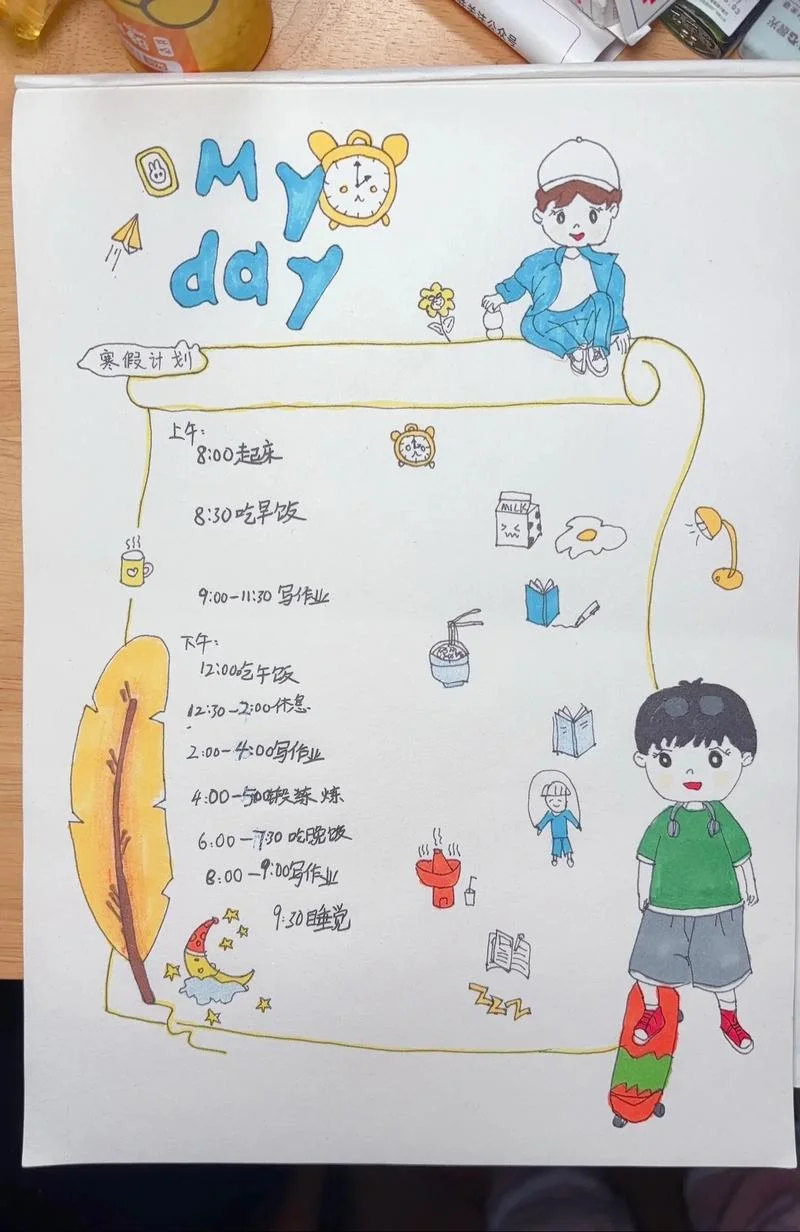 关注公众号
My
day
寒假计划
上午:
8:00起床
8:30吃早饭
MILK
9:00-11:30 写作业
下午:
12:00吃午饭
12:30-2:00休息
2:00-4:00写作业
4:00-5:00锻炼
6:00-7:30 吃晚饭
8:00-9:00写作业
9:30睡觉
zzz